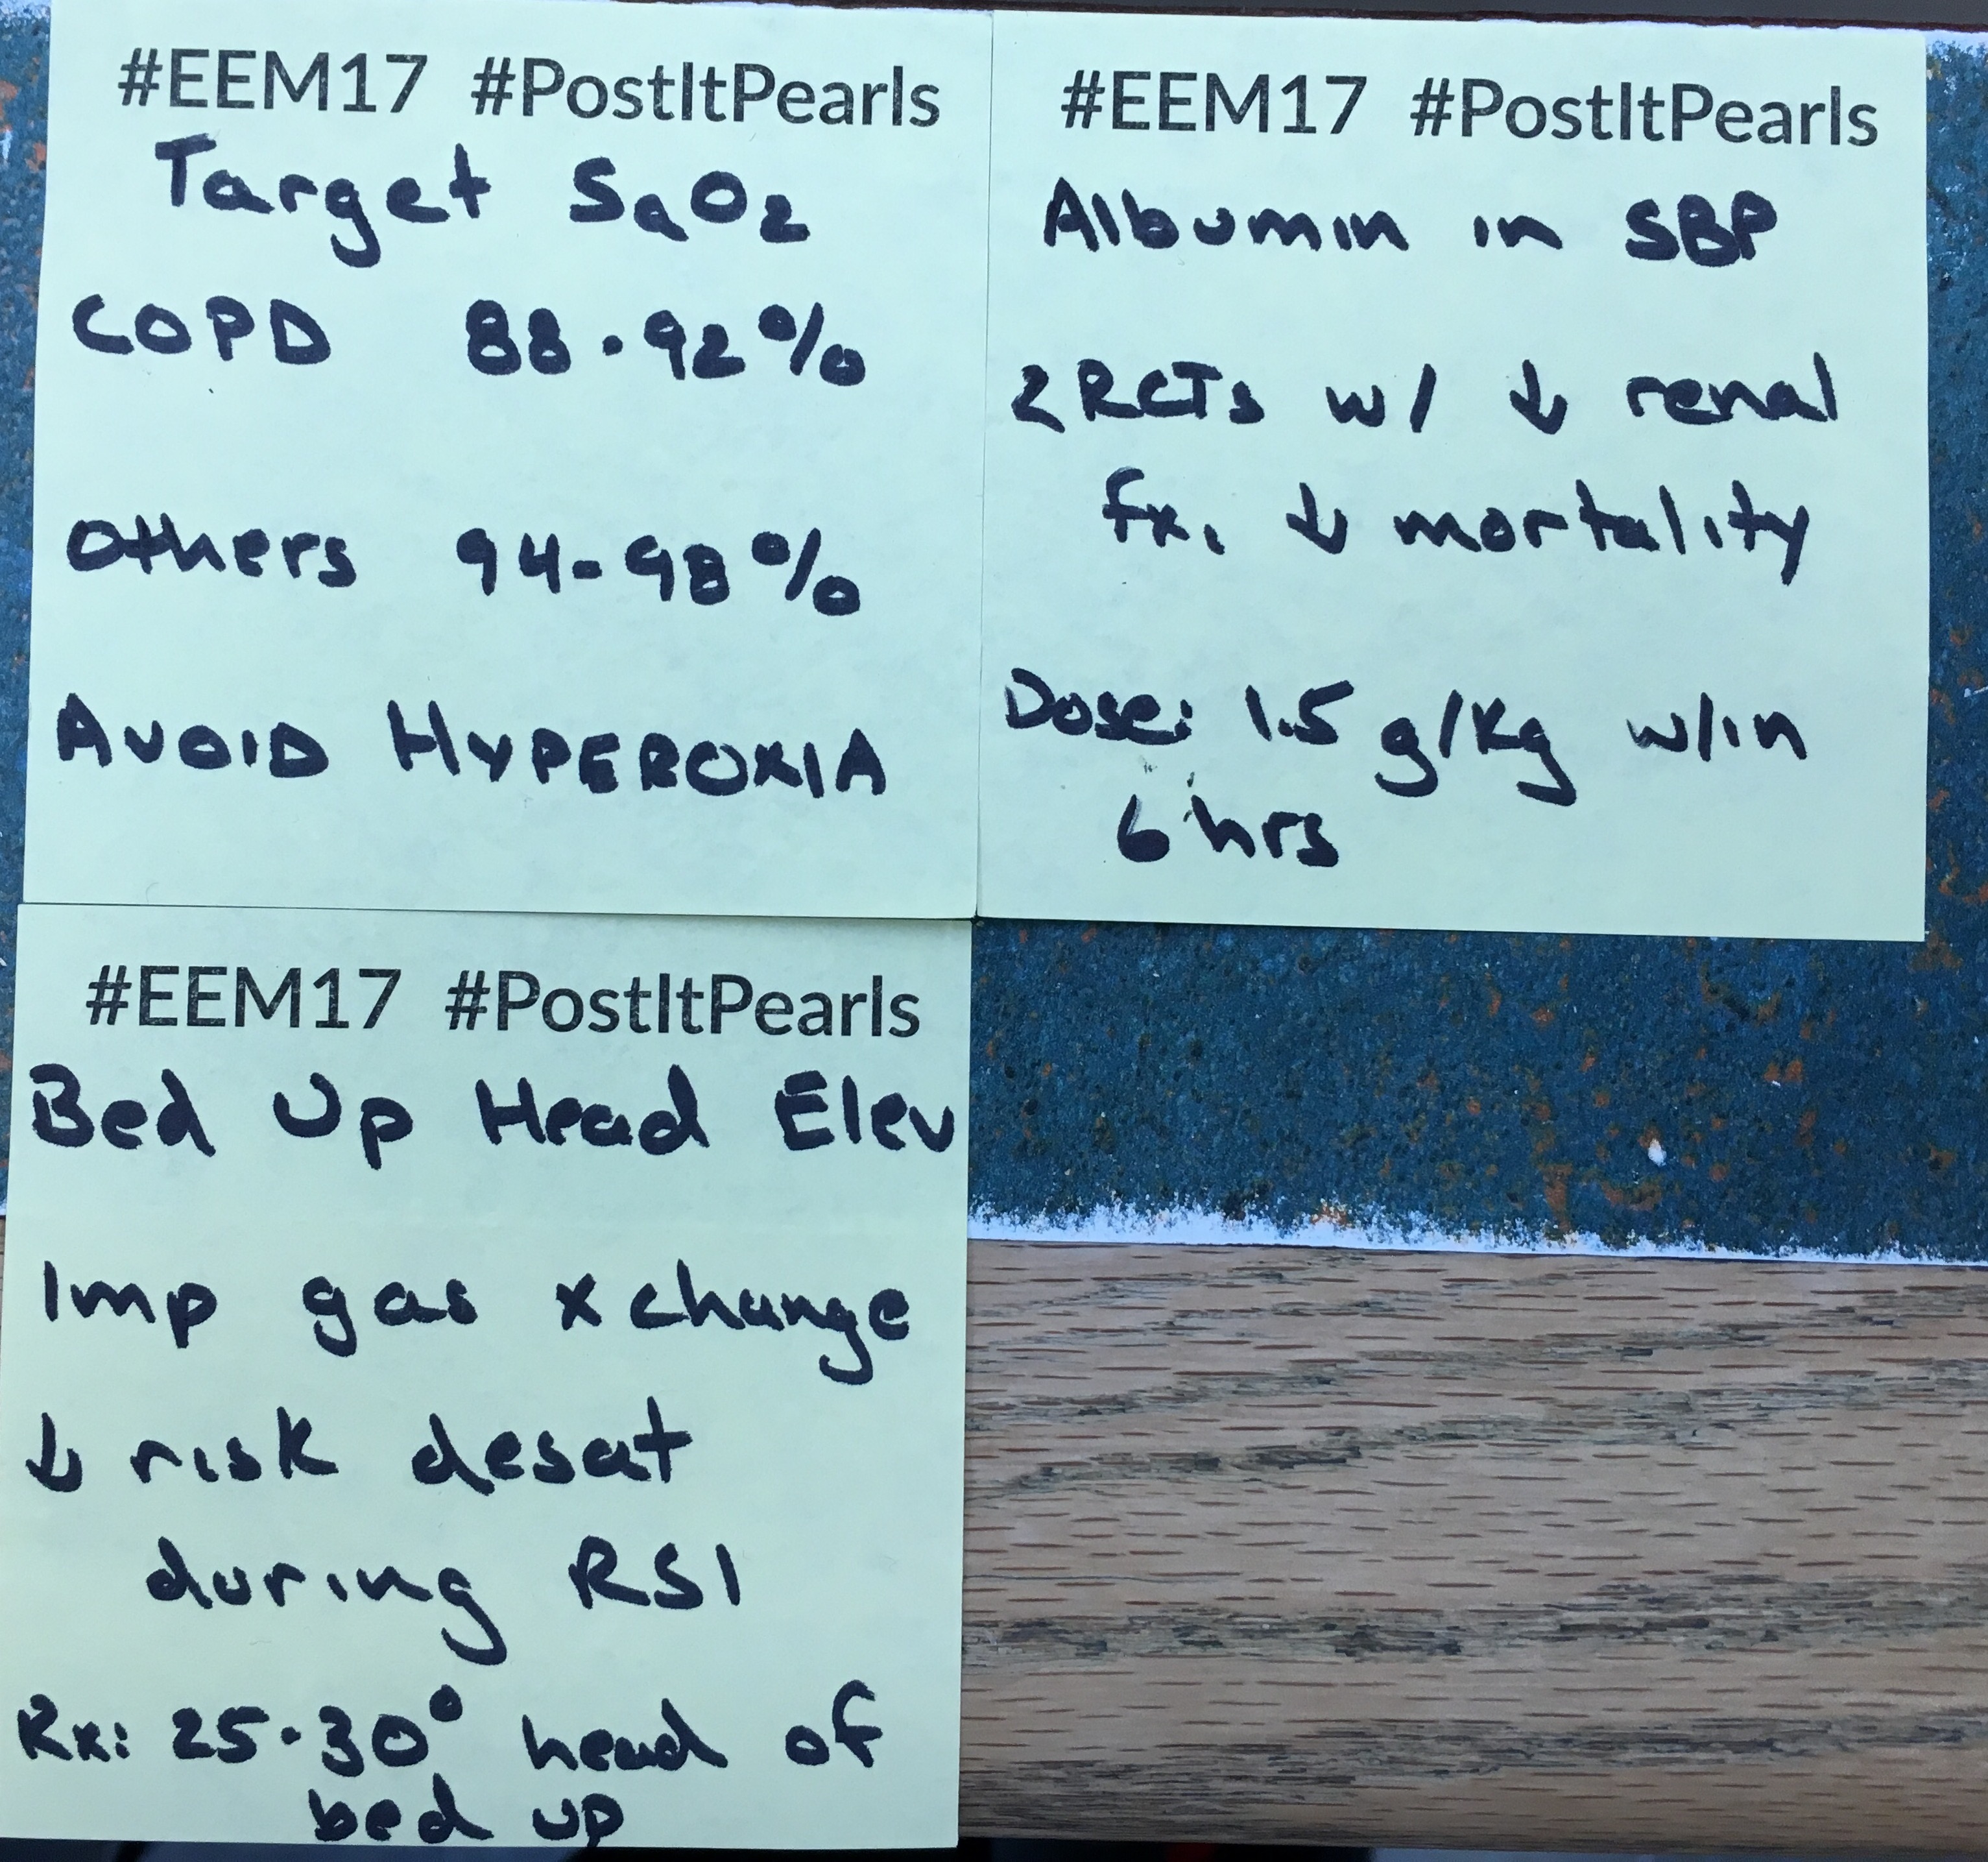 #EEM17 #PostItPearls
Target SaO2
COPD 88-92%
Others 94-98%
AVOID HYPEROXIA
#EEM17 #PostItPearls
Albumin in SBP
2 RCTs w/ ↓ renal
fx, ↓ mortality
Dose: 1.5 g/kg w/in
6 hrs
#EEM17 #PostItPearls
Bed Up Head Elev
Imp gas xchange
↓ risk desat
during RSI
Rx: 25-30° head of
bed up